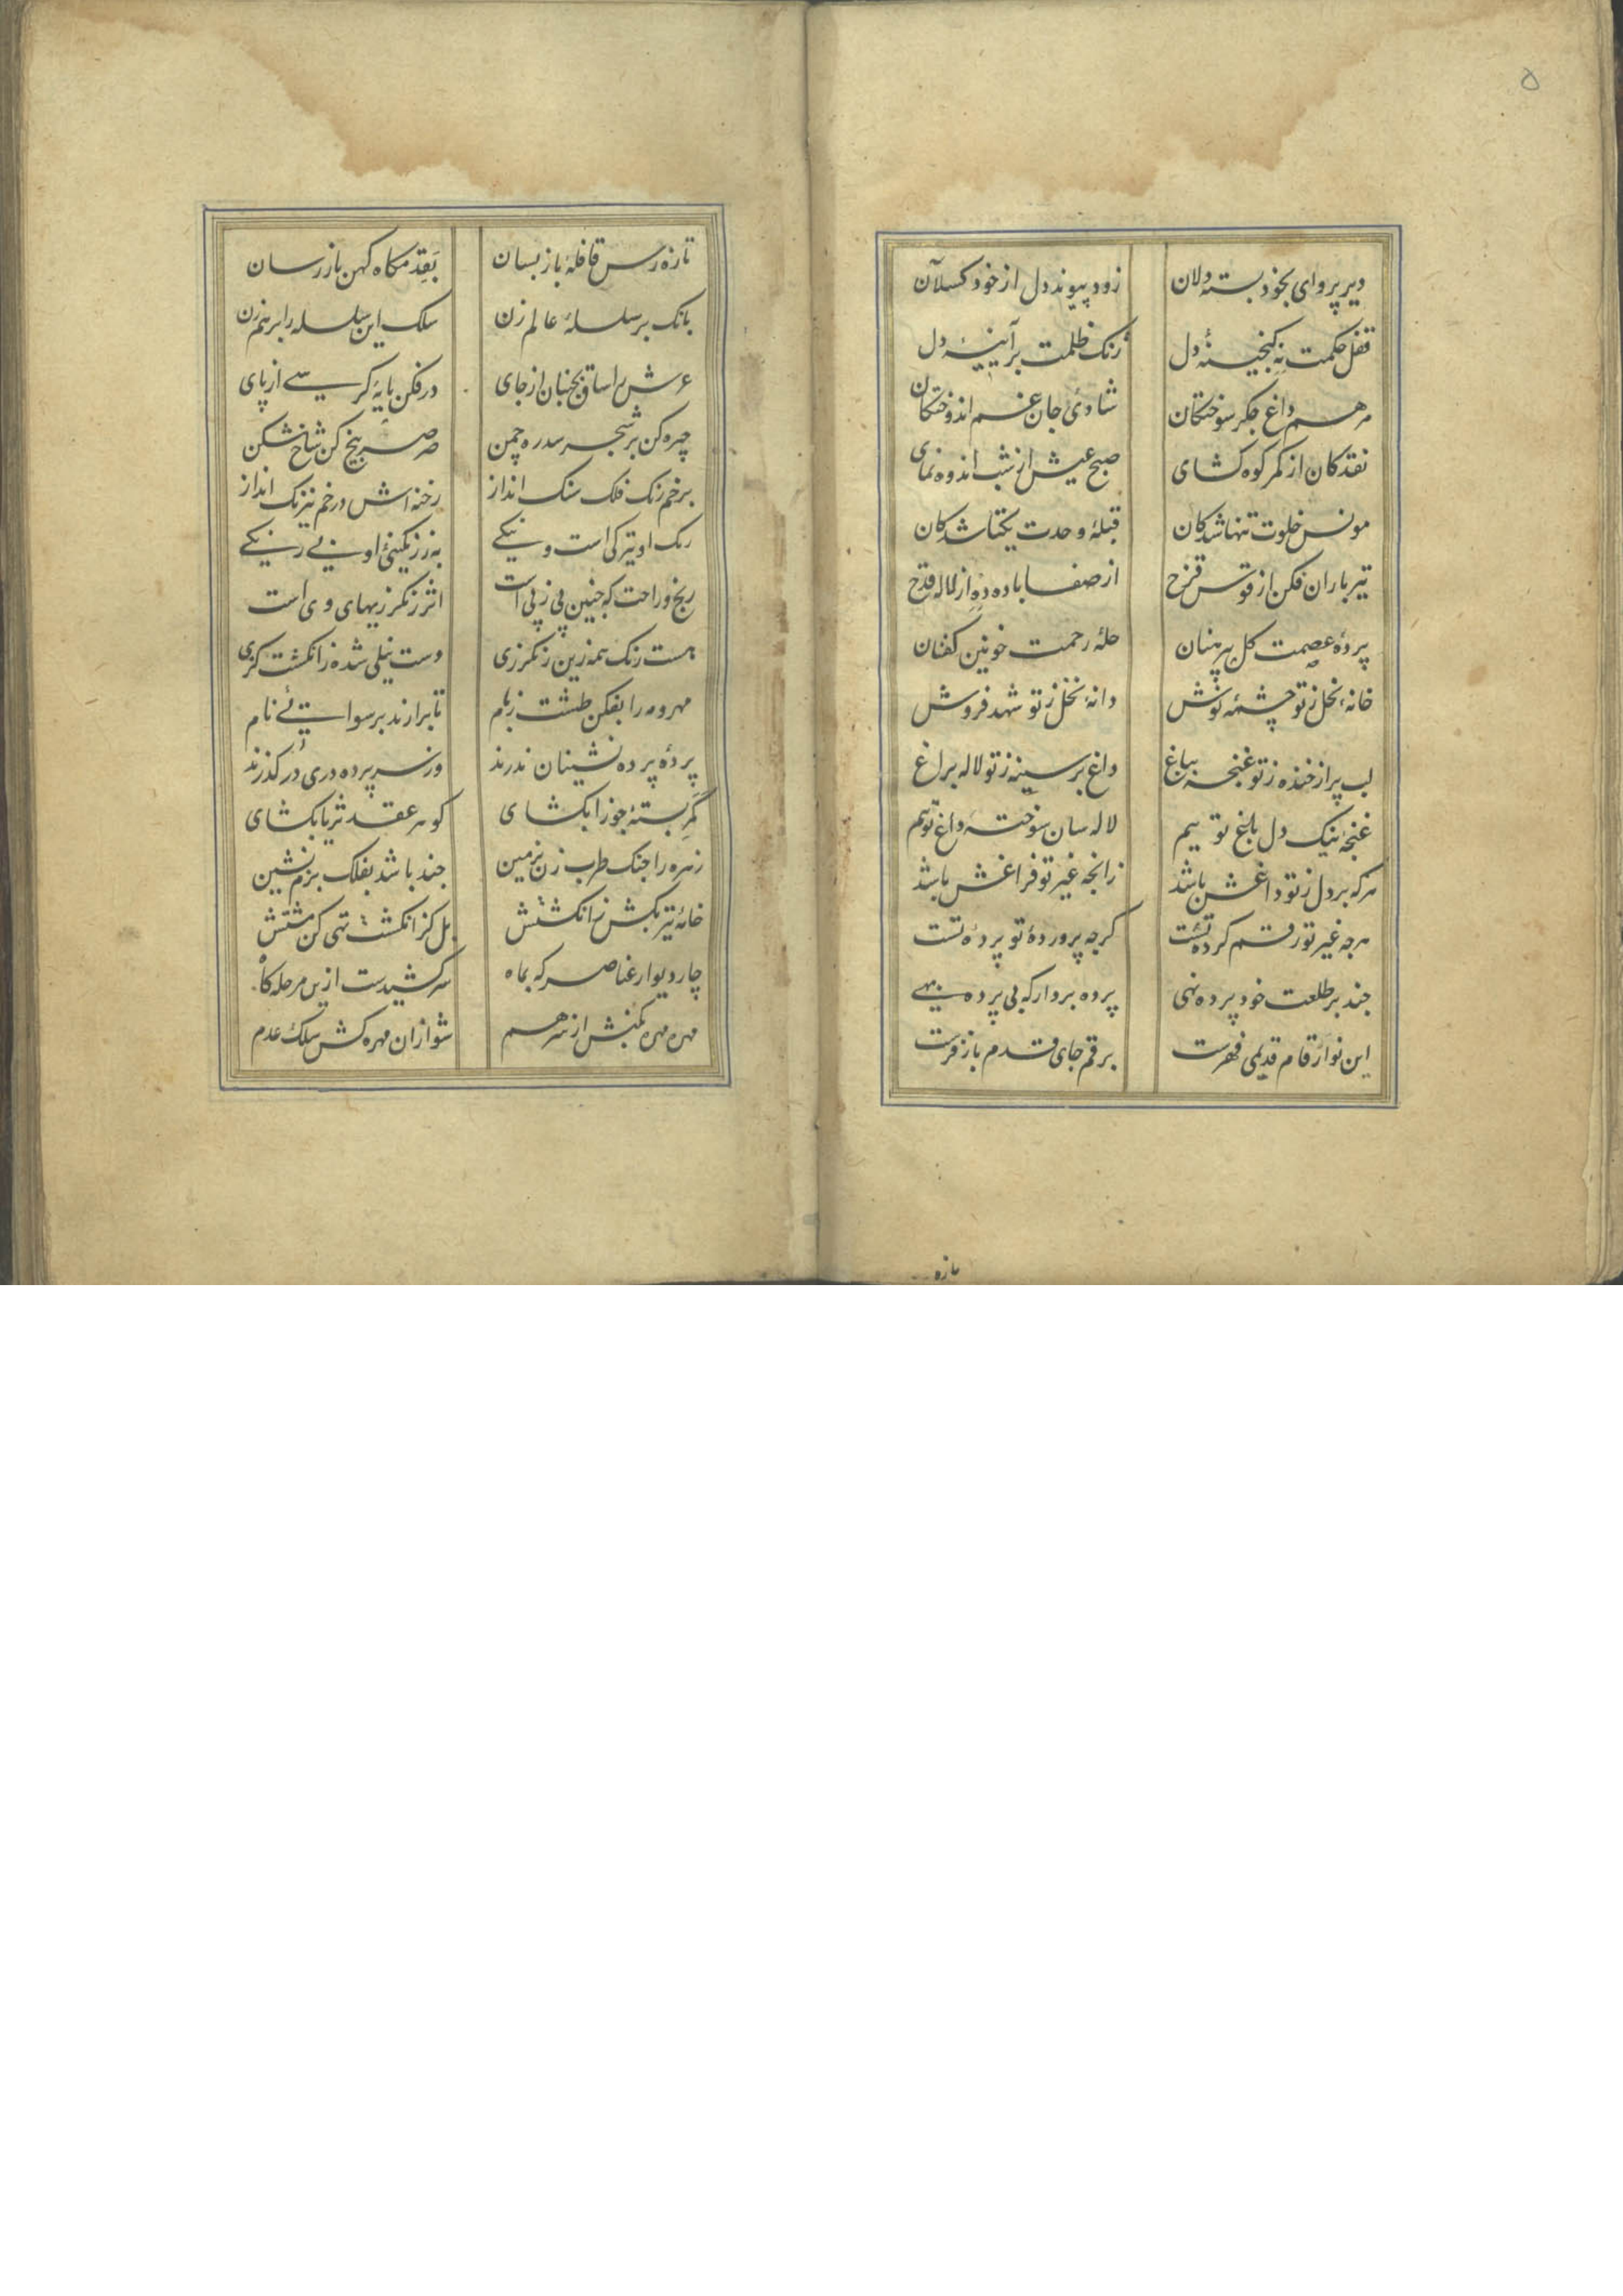 ۵
دیر پروای بخود بسته دلان زود پیوند دل از خود کسلان
قفل حکمت نه کنجینهٔ دل زنک ظلمت بر آیینهٔ دل
مرهم داغ جکر سوختکان شادی جان غم اندوختکان
نقد کان از کمر کوه کشای صبح عیش از شب اندوه نمای
مونس خلوت تنها شدکان قبلهٔ وحدت یکتا شدکان
تیر باران فکن از قوس قزح از صفا باده ده از لاله قدح
پردهٔ عصمت کل پیرهنان حلهٔ رحمت خونین کفنان
خانهٔ نحل ز تو چشمهٔ نوش دانهٔ نخل ز تو شهد فروش
لب پر از خنده ز تو غنجه بباغ داغ بر سینه ز تو لاله براغ
غنجهٔ تنک دل باغ توییم لاله سان سوختهٔ داغ توییم
هرکه بر دل ز تو داغش باشد زانجه غیر تو فراغش باشد
هرجه غیر تو رقم کردهٔ تست کرجه پروردهٔ تو پردهٔ تست
جند بر طلعت خود پرده نهی پرده بردار که بی پرده بهی
این نو ارقام قدیمی فهرست بر قم جای قدم باز فرست
تازه
تازه رس قافلهٔ بازپسان بقدمکاه کهن باز رسان
بانک بر سلسلهٔ عالم زن سلک این سلسله را برهم زن
عرش را ساق بجنبان از جای در فکن پایهٔ کرسی از پای
چیره کن بر شجر سدره چمن صرصر بیخ کن شاخ شکن
بر خم رنک فلک سنک انداز رخنه اش در خم نیرنک انداز
رنک او تیرکی است و تنکی به ز رنکینیٔ او بی رنکی
رنج و راحت که جنین پی ز پی است اثر رنکرزیهای وی است
هست رنک همه زین رنکرزی دست نیلی شده ز انکشت کزی
مهر و مه را بفکن طشت ز بام تا برارند برسوایی نام
پردهٔ پرده نشینان ندرند وز سر پرده دری در کذرند
کمر بستهٔ جوزا بکشای کوهر عقد ثریا بکشای
زهره را جنک طرب زن بزمین جند باشد بفلک بزم نشین
خانهٔ تیر بکش ز انکشتش بل کز انکشت تهی کن مشتش
چار دیوار عناصر که بماه سر کشیدست ازین مرحله کاه
مهره مهره بکنش از سر هم شو از ان مهره کش سلک عدم